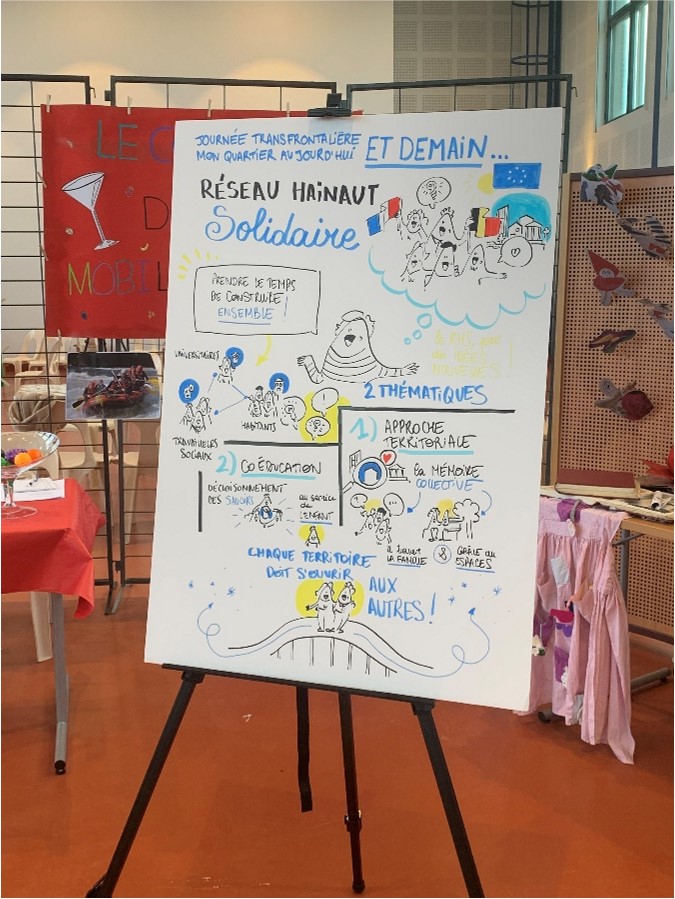 LE
D
MOBIL
JOURNÉE TRANSFRONTALIÈRE
MON QUARTIER AUJOURD'HUI
ET DEMAIN...
RÉSEAU HAINAUT
Solidaire
PRENDRE LE TEMPS
DE CONSTRUIRE
ENSEMBLE !
UNIVERSITAIRES
HABITANTS
TRAVAILLEURS
SOCIAUX
2 THÉMATIQUES
1) APPROCHE
TERRITORIALE
la MÉMOIRE
COLLECTIVE
LA FAMILLE
&
GRÂCE aux
ESPACES
2) COÉDUCATION
DÉCLOISONNEMENT
DES SAVOIRS
au service
de
L'ENFANT
CHAQUE TERRITOIRE
DOIT S'OUVRIR
AUX
AUTRES !